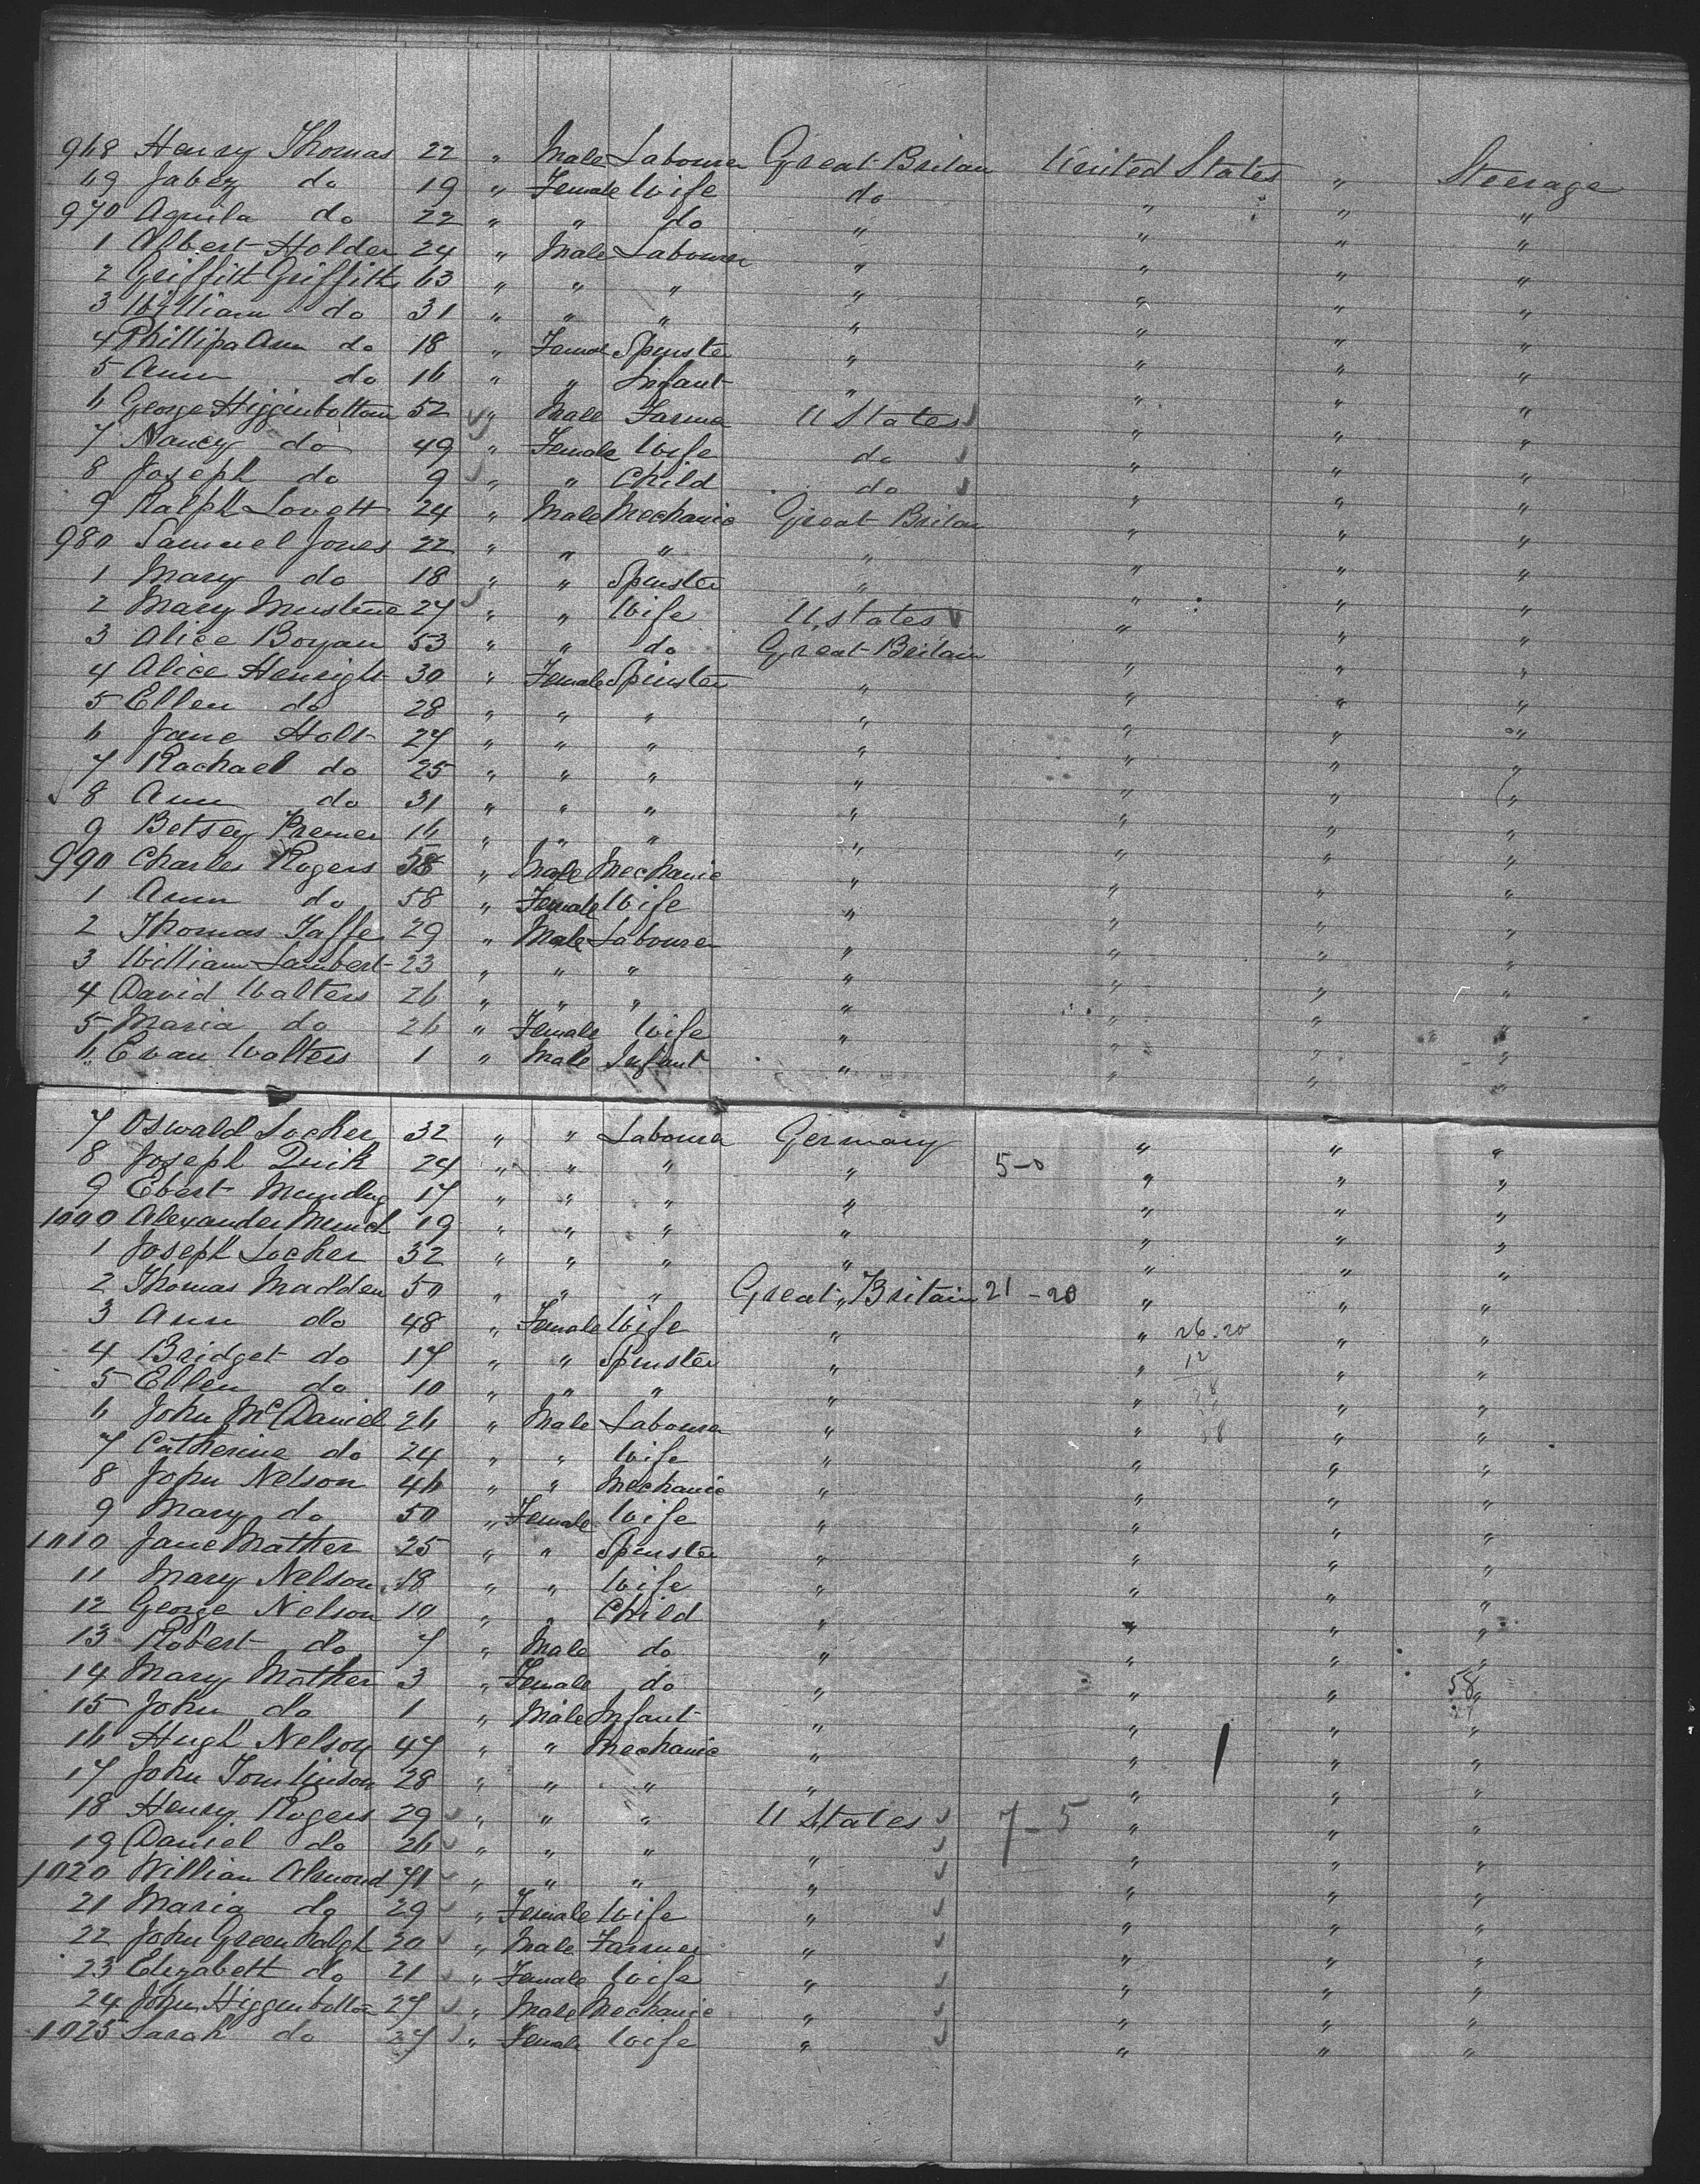 968 Henry Thomas 22 " Male Labourer Great Britan United States " Steerage
69 Jabez do 19 " Female Wife do " " "
970 Aquila do 22 " " do " " " "
1 Albert Holder 24 " Male Labourer " " " "
2 Griffith Griffith 63 " " " " " " "
3 William do 31 " " " " " " "
4 Phillipa Ann do 18 " Femal Spinster " " " "
5 Ann do 16 " " Infant " " " "
6 George Higginbottom 52 " Male Farmer U States " " "
7 Nancy do 49 " Female Wife do " " "
8 Joseph do 9 " " Child do " " "
9 Ralph Lovett 24 " Male Mechanic Great Britan " " "
980 Samuel Jones 22 " " " " " " "
1 Mary do 18 " " Spinster " " " "
2 Mary 27 " " Wife U. States " " "
3 Alice Boyan 53 " " do Great Britain " " "
4 Alice Henright 30 " Female Spinster " " " "
5 Ellen do 28 " " " " " " "
6 Jane Holt 27 " " " " " " "
7 Rachael do 25 " " " " " " "
8 Ann do 31 " " " " " " "
9 Betsey 16 " " " " " " "
990 Charles Rogers 58 " Male Mechanic " " " "
1 Ann do 58 " Female Wife " " " "
2 Thomas Jaffe 29 " Male Labourer " " " "
3 William Lambert 23 " " " " " " "
4 David Walters 26 " " " " " " "
5 Maria do 26 " Female Wife " " " "
6 Evan Walters 1 " Male Infant " " " "
7 Oswald Locher 32 " " Labourer Germany " " "
8 Joseph Quik 24 " " " " 5-0 " " "
9 Ebert 17 " " " " " " "
1000 Alexander Munch 19 " " " " " " "
1 Joseph Locher 32 " " " " " " "
2 Thomas Madden 50 " " " Great Britain 21-20 " " "
3 Ann do 48 " Female Wife " " 26.20 " "
4 Bridget do 17 " " Spinster " " 12 " "
5 Ellen do 10 " " " " " " "
6 John McDaniel 26 " Male Labourer " " " "
7 Catherine do 24 " " Wife " " " "
8 John Nelson 46 " " Mechanic " " " "
9 Mary do 50 " Female Wife " " " "
1010 Jane Mather 25 " " Spinster " " " "
11 Mary Nelson 18 " " Wife " " " "
12 George Nelson 10 " " Child " " " "
13 Robert do 7 " Male do " " " "
14 Mary Mather 3 " Female do " " " 58 "
15 John do 1 " Male Infant " " " "
16 Hugh Nelson 47 " " Mechanic " " " "
17 John Tomlinson 28 " " " " " " "
18 Henry Rogers 29 " " " U States 7-5 " " "
19 Daniel do 26 " " " " " " "
1020 William Almond 71 " " " " " " "
21 Maria do 29 " Female Wife " " " "
22 John Greenhalgh 20 " Male Farmer " " " "
23 Elizabeth do 21 " Female Wife " " " "
24 John Higgenbottom 27 " Male Mechanic " " " "
1025 Sarah do 27 " Female Wife " " " "